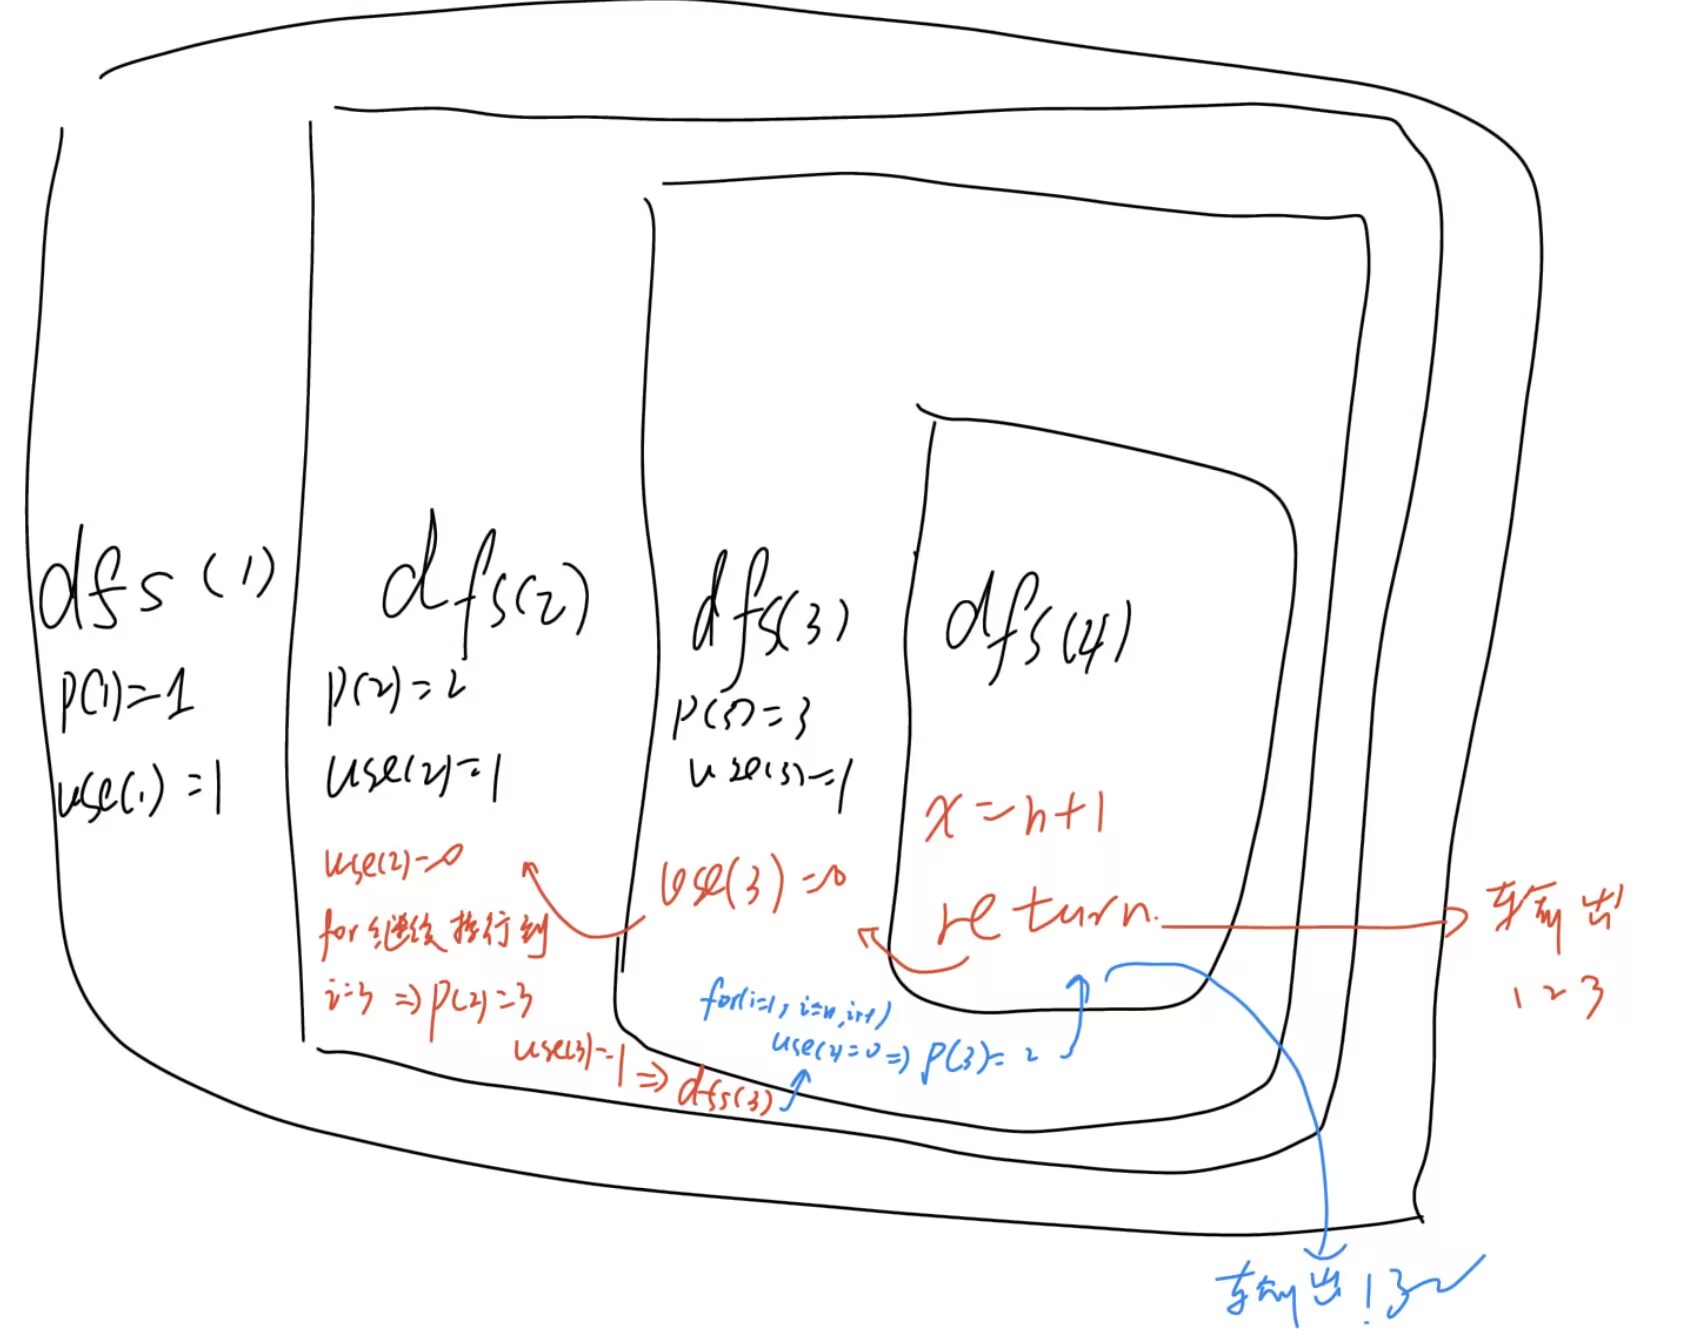 dfs(1)
p(1)=1
use(1)=1
dfs(2)
p(2)=2
use(2)=1
use(2)=0
for继续执行到
i=3 => p(2)=3
use(3)=1 => dfs(3)
dfs(3)
p(3)=3
use(3)=1
use(3)=0
for(i=1, i=n, i++)
use(2)=0 => p(3)=2
dfs(4)
x=n+1
return.
输出
1 2 3
输出 1 3 2